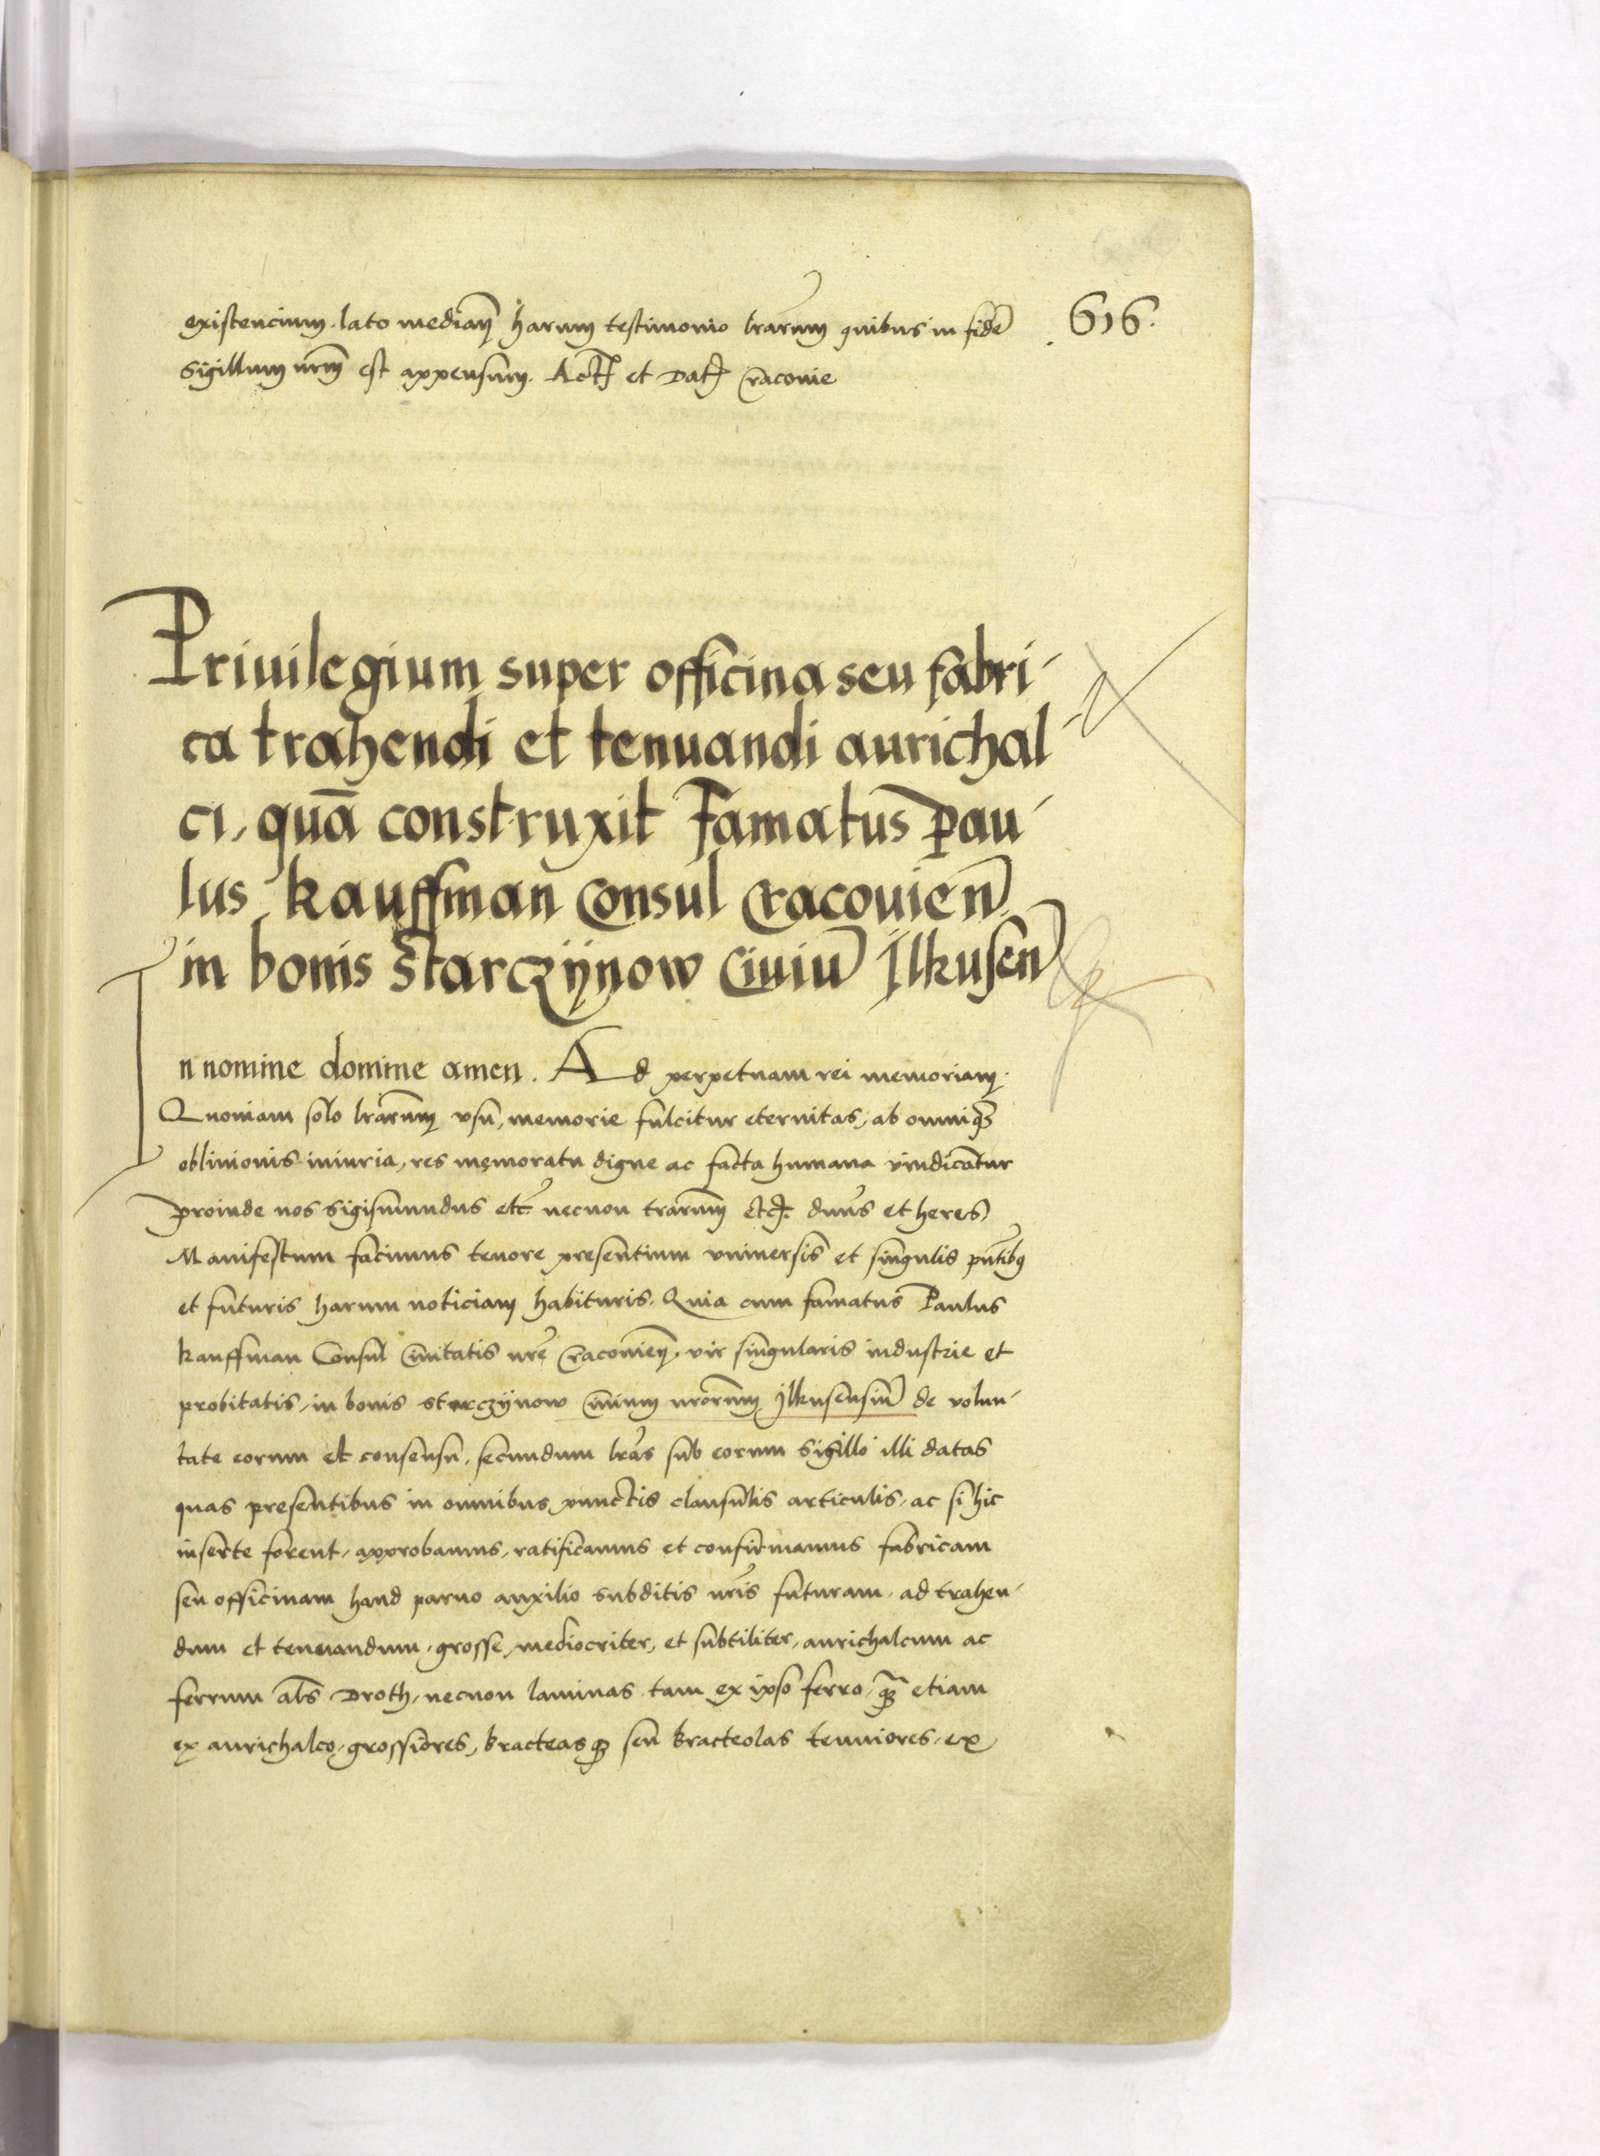 existencium. lato median̄ harum testimonio l̄rarum quibus in fidē
616.
sigillum nr̄m est appensum. Act̄ et Dat̄ Cracouie
Priuilegium super officina seu fabri-
ca trahendi et tenuandi aurichal-
ci, quā construxit Famatus Pau-
lus kauffman Consul Cracouien̄
in bonis Starczÿnow Ciuiū Ilkusen̄
In nomine domine amen. Ad perpetuam rei memoriam.
Quoniam solo l̄rarum vsu, memorie fulcitur eternitas, ab omniq̄
obliuionis iniuria, res memoratu digne ac facta humana vindicantur
proinde nos Sigismundus etc̄ necnon terrarum etc̄. dn̄us et heres
Manifestum facimus tenore presentium vniuersis et singulis pn̄tibus
et futuris harum noticiam habituris. Quia cum famatus Paulus
kauffman Consul Ciuitatis nr̄e Cracouien̄, vir singularis industrie et
probitatis, in bonis starczÿnow Ciuium nr̄orum Ilkusensiū de volun-
tate eorum et consensu, secundum l̄ras sub eorum sigillo illi datas
quas presentibus in omnibus punctis clausulis articulis, ac si hic
inserte forent, approbamus, ratificamus et confirmamus fabricam
seu officinam haud paruo auxilio subditis nr̄is futuram, ad trahen-
dum et tenuandum, grosse, mediocriter, et subtiliter, aurichalcum ac
ferrum al̄s Droth, necnon laminas tam ex ipso ferro, q̄ etiam
ex aurichalco, grossiores, bracteasq̄ seu bracteolas tenuiores, ex